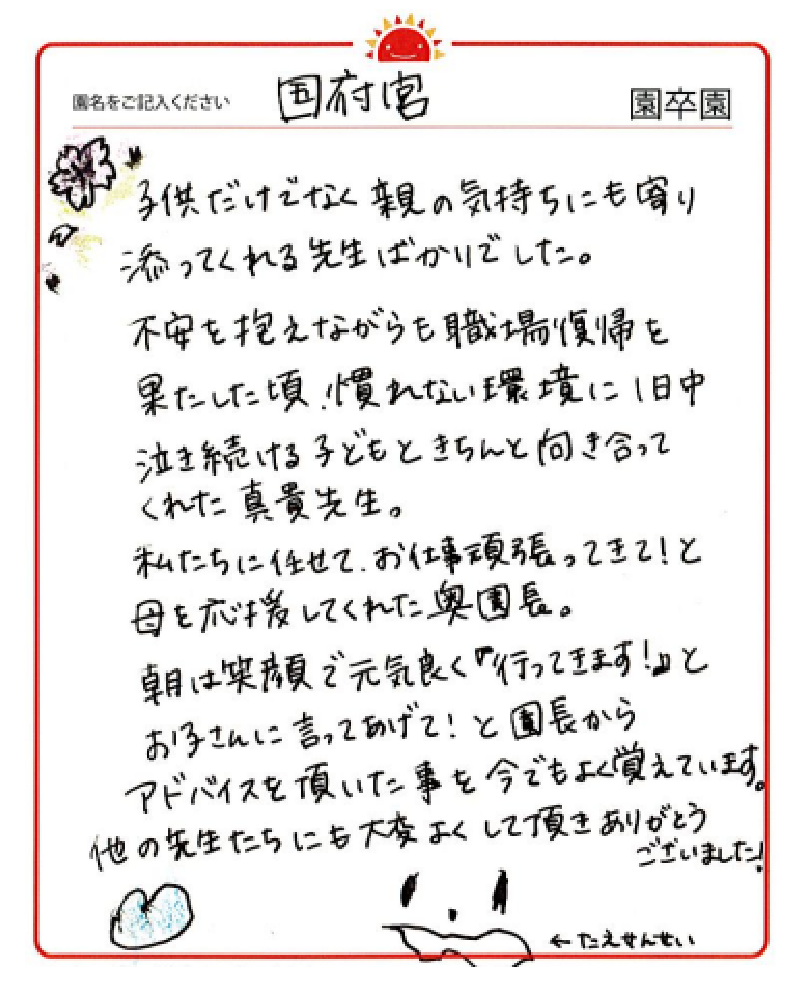 園名をご記入ください 国府宮 園卒園
子供だけでなく親の気持ちにも寄り
添ってくれる先生ばかりでした。
不安を抱えながらも職場復帰を
果たした頃、慣れない環境に1日中
泣き続ける子どもときちんと向き合って
くれた真貴先生。
私たちに任せて、お仕事頑張ってきて!と
母を応援してくれた奥園長。
朝は笑顔で元気良く『行ってきます!』と
お子さんに言ってあげて!と園長から
アドバイスを頂いた事を今でもよく覚えています。
他の先生たちにも大変よくして頂きありがとう
ございました!
←たえせんせい